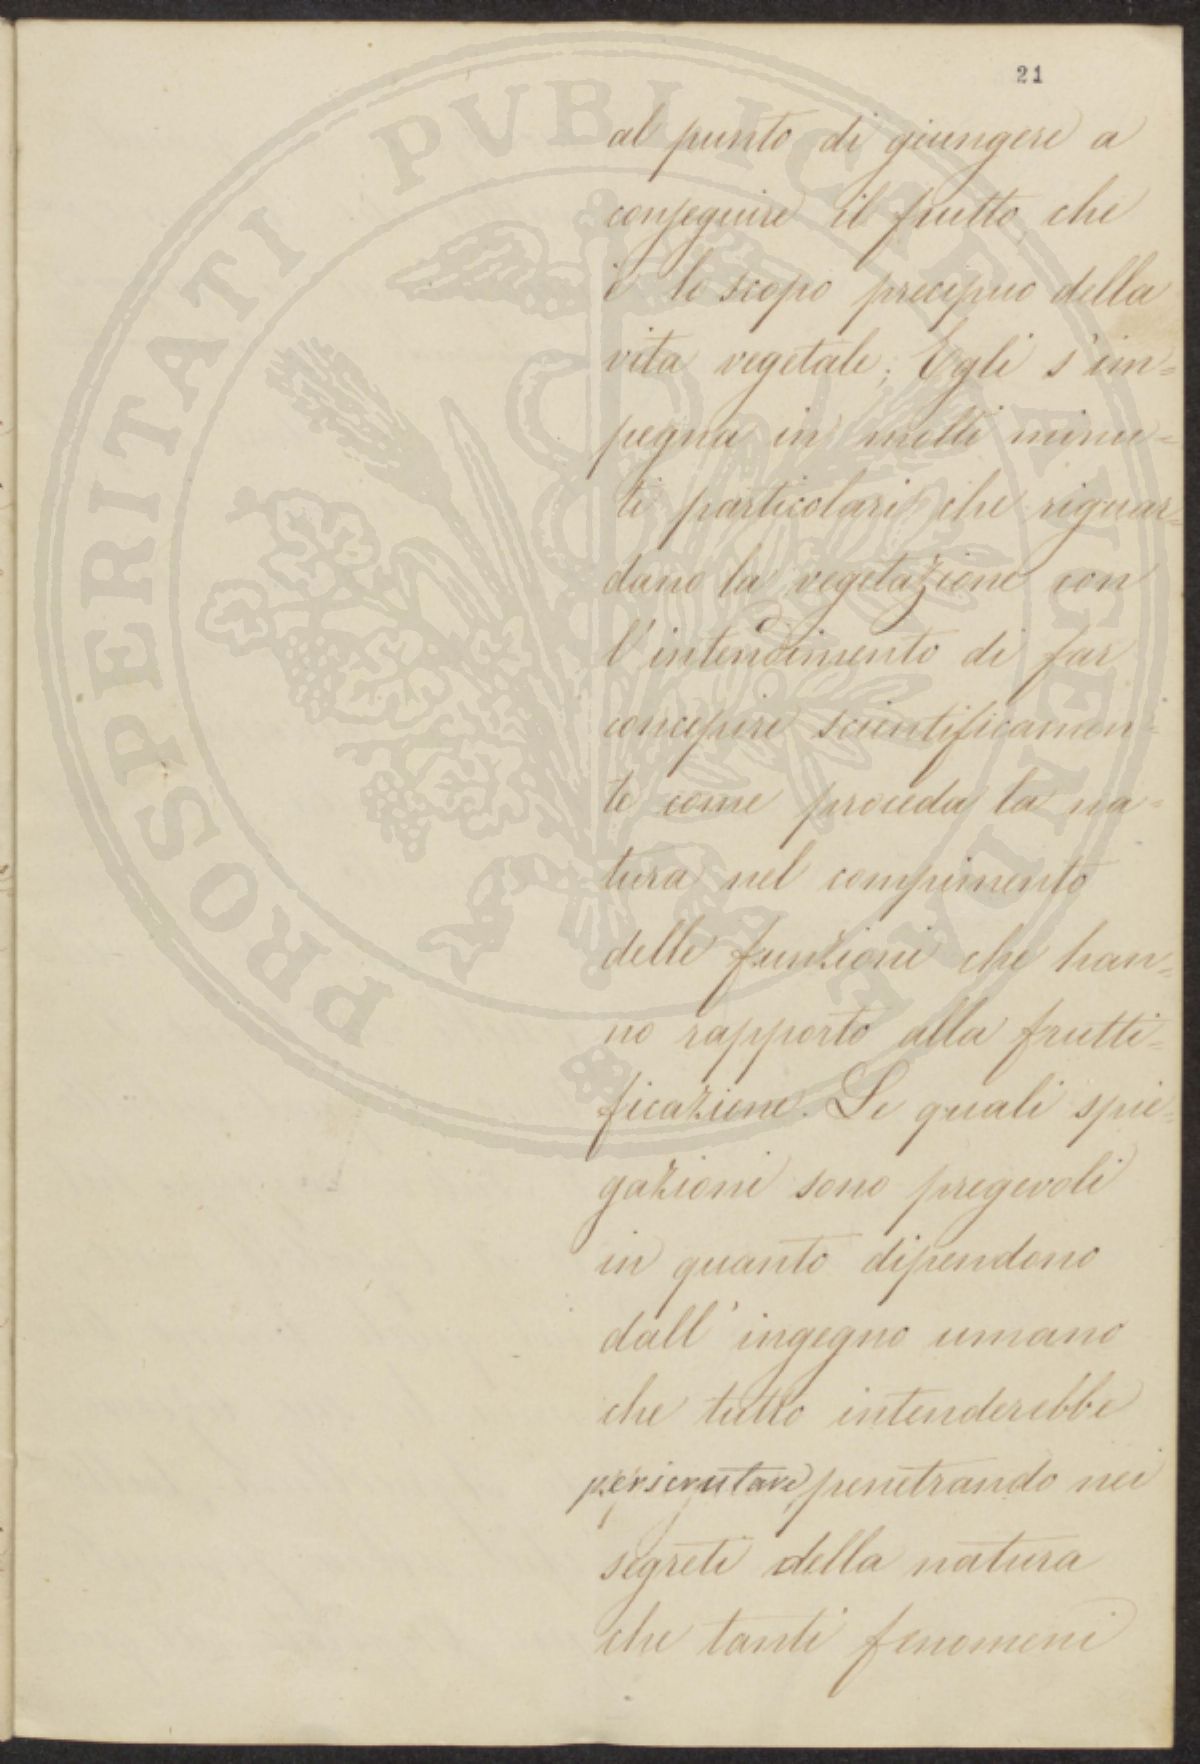 21
al punto di giungere a
conseguire il frutto, che
è lo scopo precipuo della
vita vegetale; Egli s'im=
pegna in molti minu=
ti particolari che riguar=
dano la vegetazione con
l'intendimento di far
concepire scientificamen=
te come proceda la na=
tura nel compimento
delle funzioni che han=
no rapporto alla frutti=
ficazione. Le quali spie=
gazioni sono pregevoli
in quanto dipendono
dall'ingegno umano
che tutto intenderebbe
perscrutare, penetrando nei
segreti della natura
che tanti fenomeni
PROSPERITATI PUBLICAE AUGENDAE